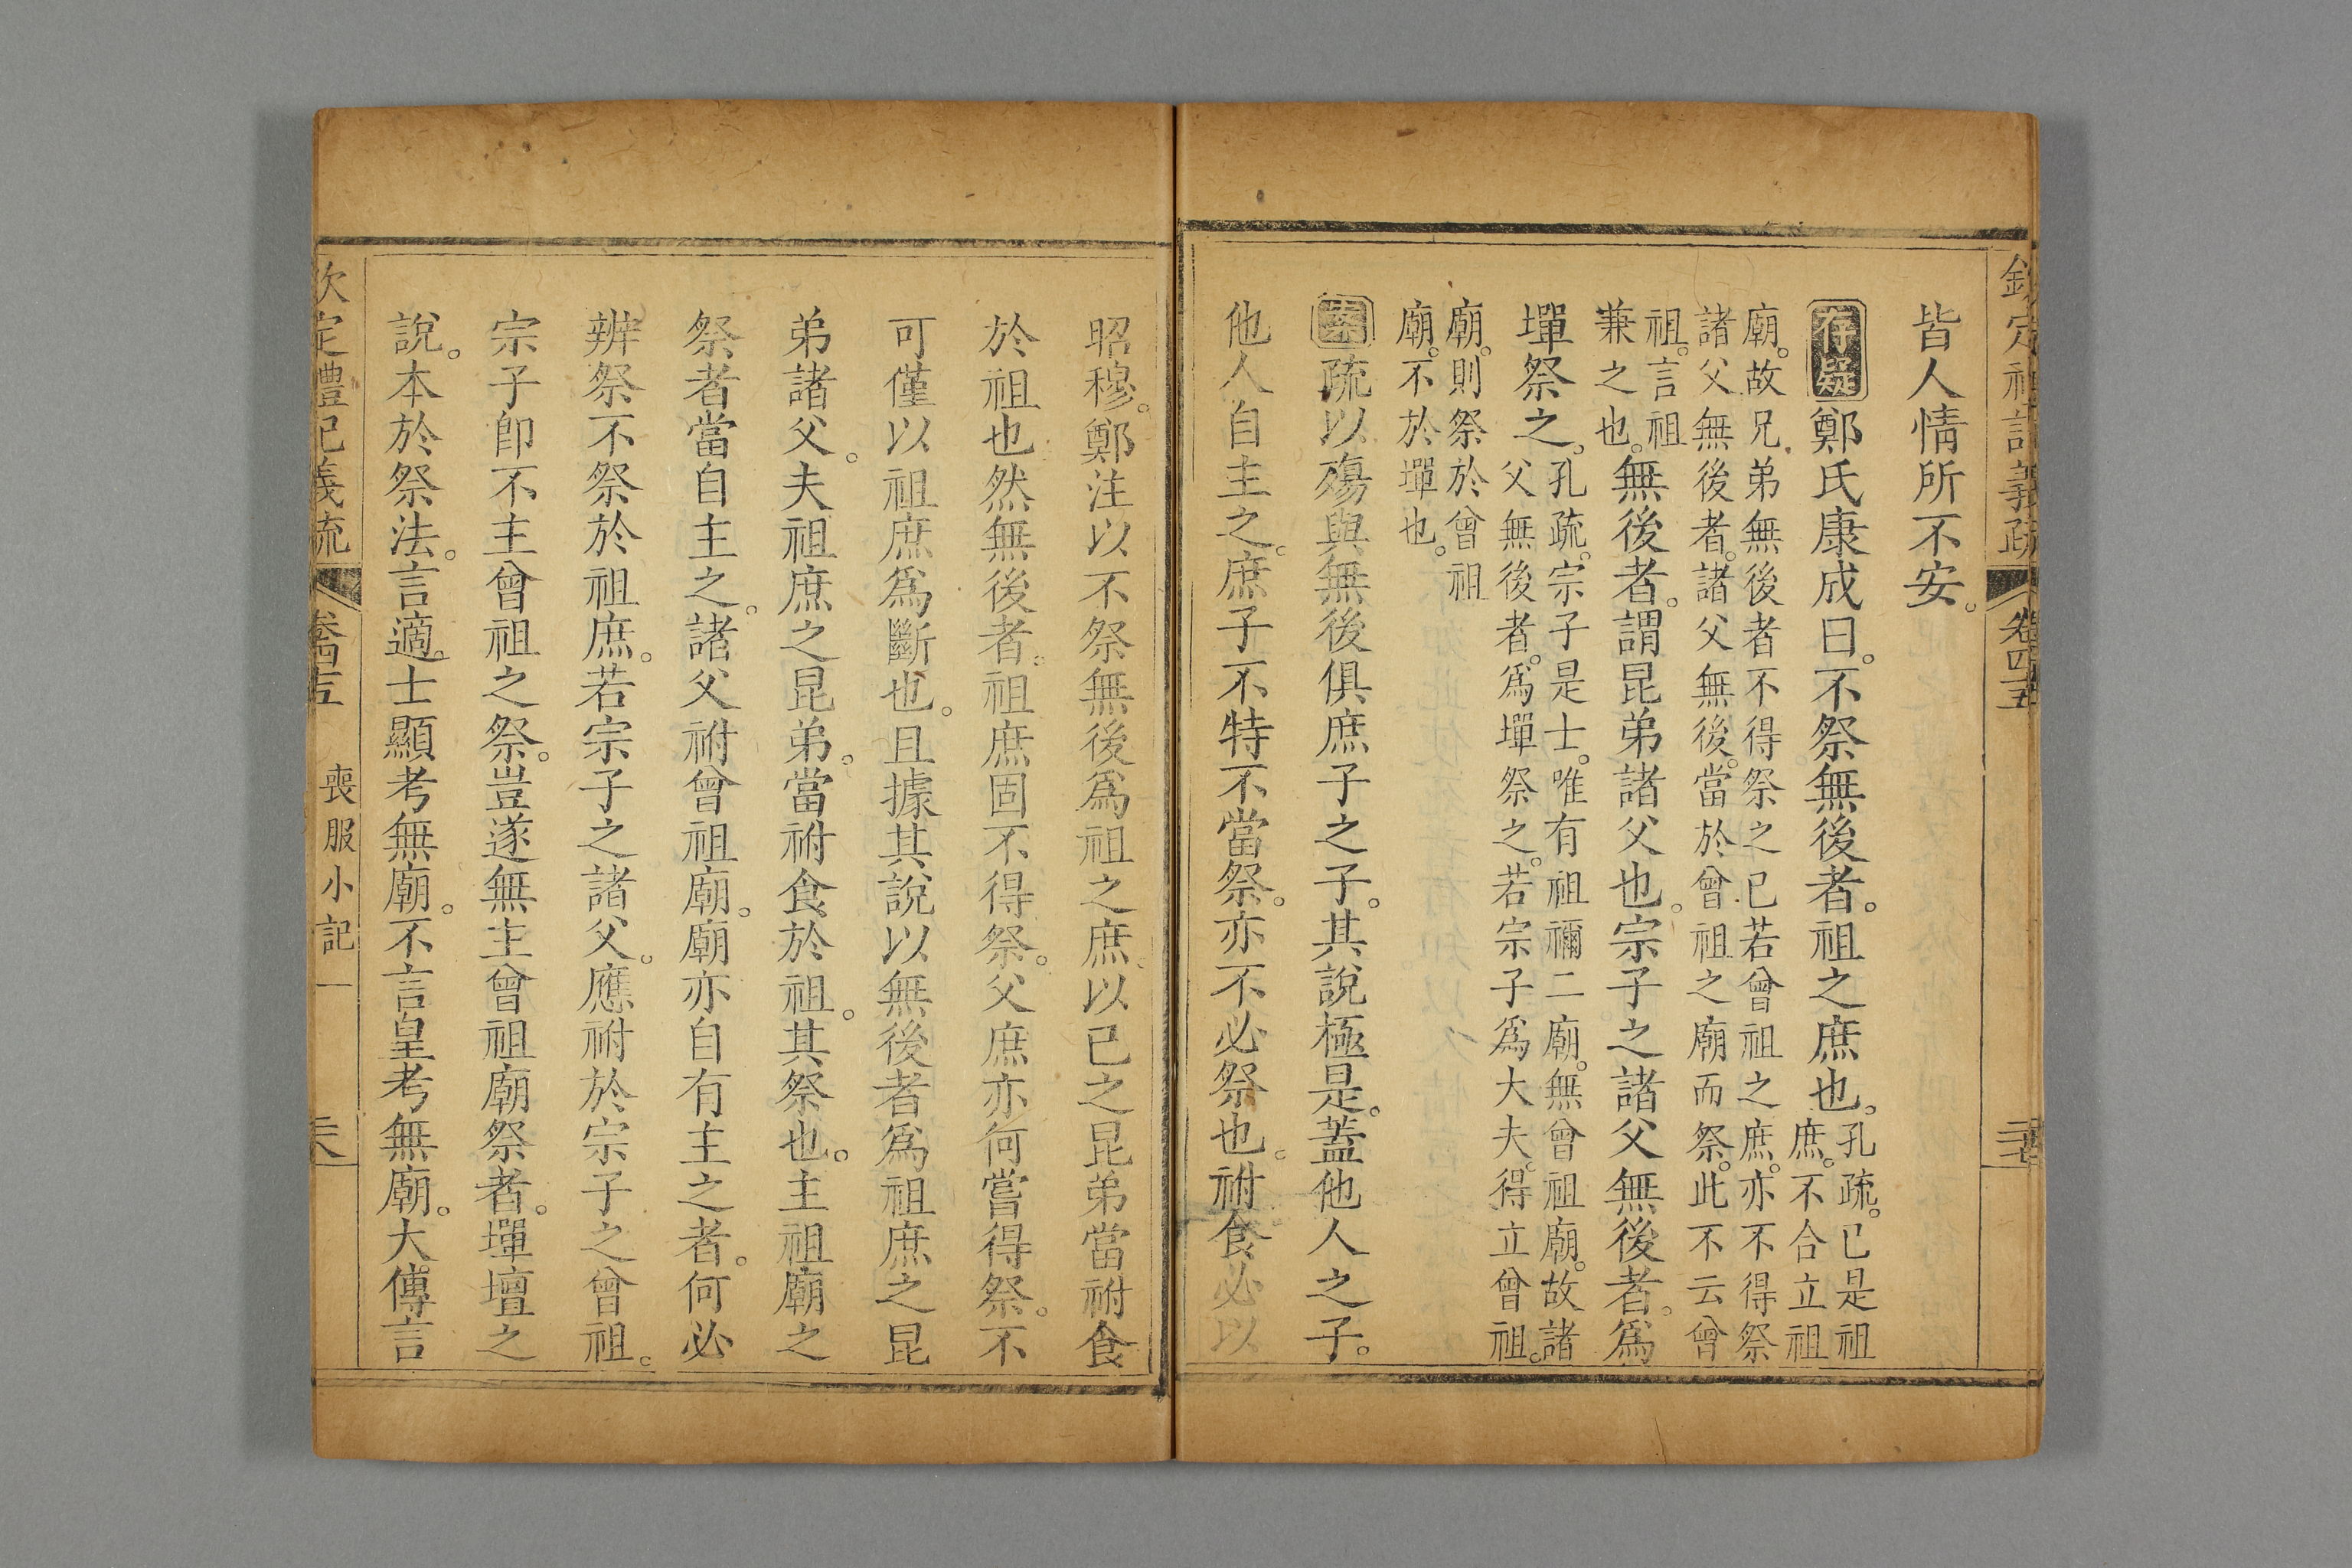 欽定禮記義疏 卷四十五
皆人情所不安。
存疑 鄭氏康成曰。不祭無後者。祖之庶也。孔疏。已是祖
庶。不合立祖
廟。故兄弟無後者不得祭之已若曾祖之庶。亦不得祭
諸父無後者。諸父無後。當於曾祖之廟而祭。此不云曾
祖。言祖
兼之也。無後者。謂昆弟諸父也。宗子之諸父無後者。爲
墠祭之。孔疏。宗子是士。唯有祖禰二廟。無曾祖廟。故諸
父無後者。爲墠祭之。若宗子爲大夫。得立曾祖。
廟。則祭於曾祖
廟。不於墠也。
案 疏以殤與無後俱庶子之子。其說極是。蓋他人之子。
他人自主之。庶子不特不當祭。亦不必祭也。祔食必以
昭穆。鄭注以不祭無後爲祖之庶。以已之昆弟當祔食
於祖也然無後者。祖庶固不得祭。父庶亦何嘗得祭。不
可僅以祖庶爲斷也。且據其說以無後者爲祖庶之昆
弟諸父。夫祖庶之昆弟。當祔食於祖。其祭也。主祖廟之
祭者當自主之。諸父祔曾祖廟。廟亦自有主之者。何必
辨祭不祭於祖庶。若宗子之諸父。應祔於宗子之曾祖。
宗子卽不主曾祖之祭。豈遂無主曾祖廟祭者。墠壇之
說。本於祭法。言適士顯考無廟。不言皇考無廟。大傳言
欽定禮記義疏 卷四十五 喪服小記一 三六